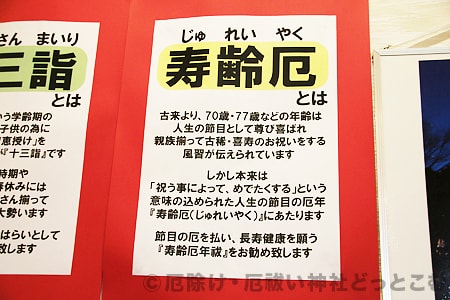 さん まいり
三詣
とは
いう学齢期の
子供の為に
恵授け」を
『十三詣』です
時期や
春休みには
さん揃って
大勢います
はらいとして
致します
じゅ れい やく
寿齢厄
とは
古来より、70歳・77歳などの年齢は
人生の節目として尊び喜ばれ
親族揃って古稀・喜寿のお祝いをする
風習が伝えられています
しかし本来は
「祝う事によって、めでたくする」という
意味の込められた人生の節目の厄年
『寿齢厄(じゅれいやく)』にあたります
節目の厄を払い、長寿健康を願う
『寿齢厄年祓』をお勧め致します
© 厄除け・厄祓い神社どっとこむ